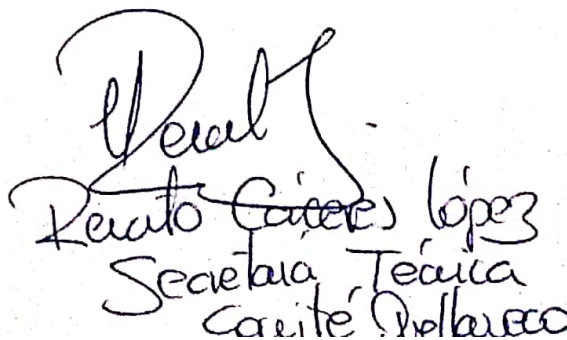 Renato Cáceres López
Secretaria Técnica
Comité Quellaveco